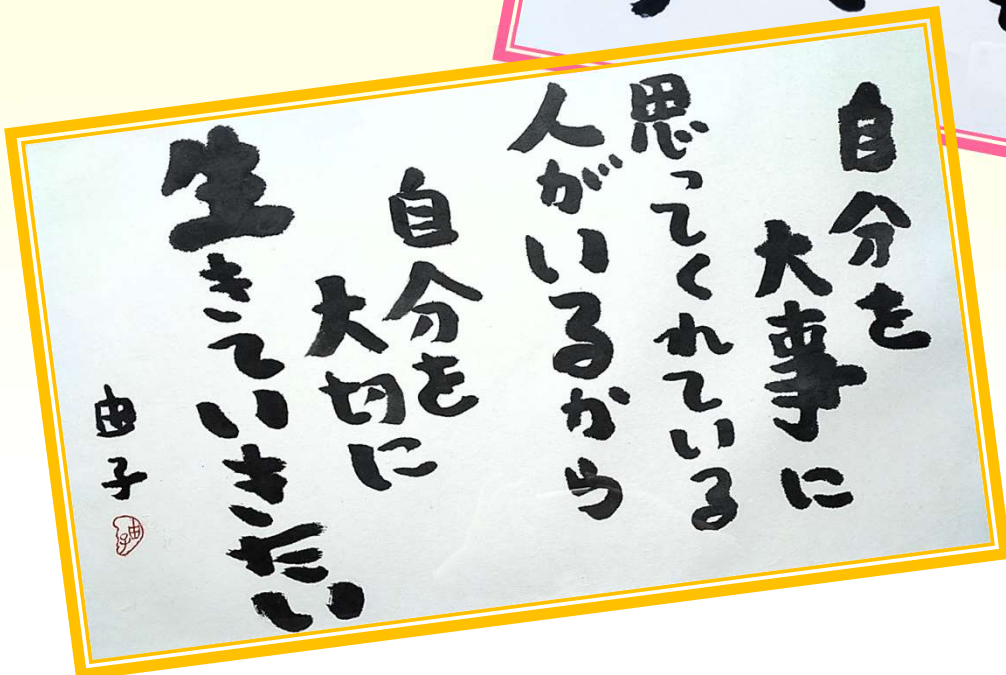 自分を
大事に
思ってくれている
人がいるから
自分を
大切に
生きていきたい
由子
由子